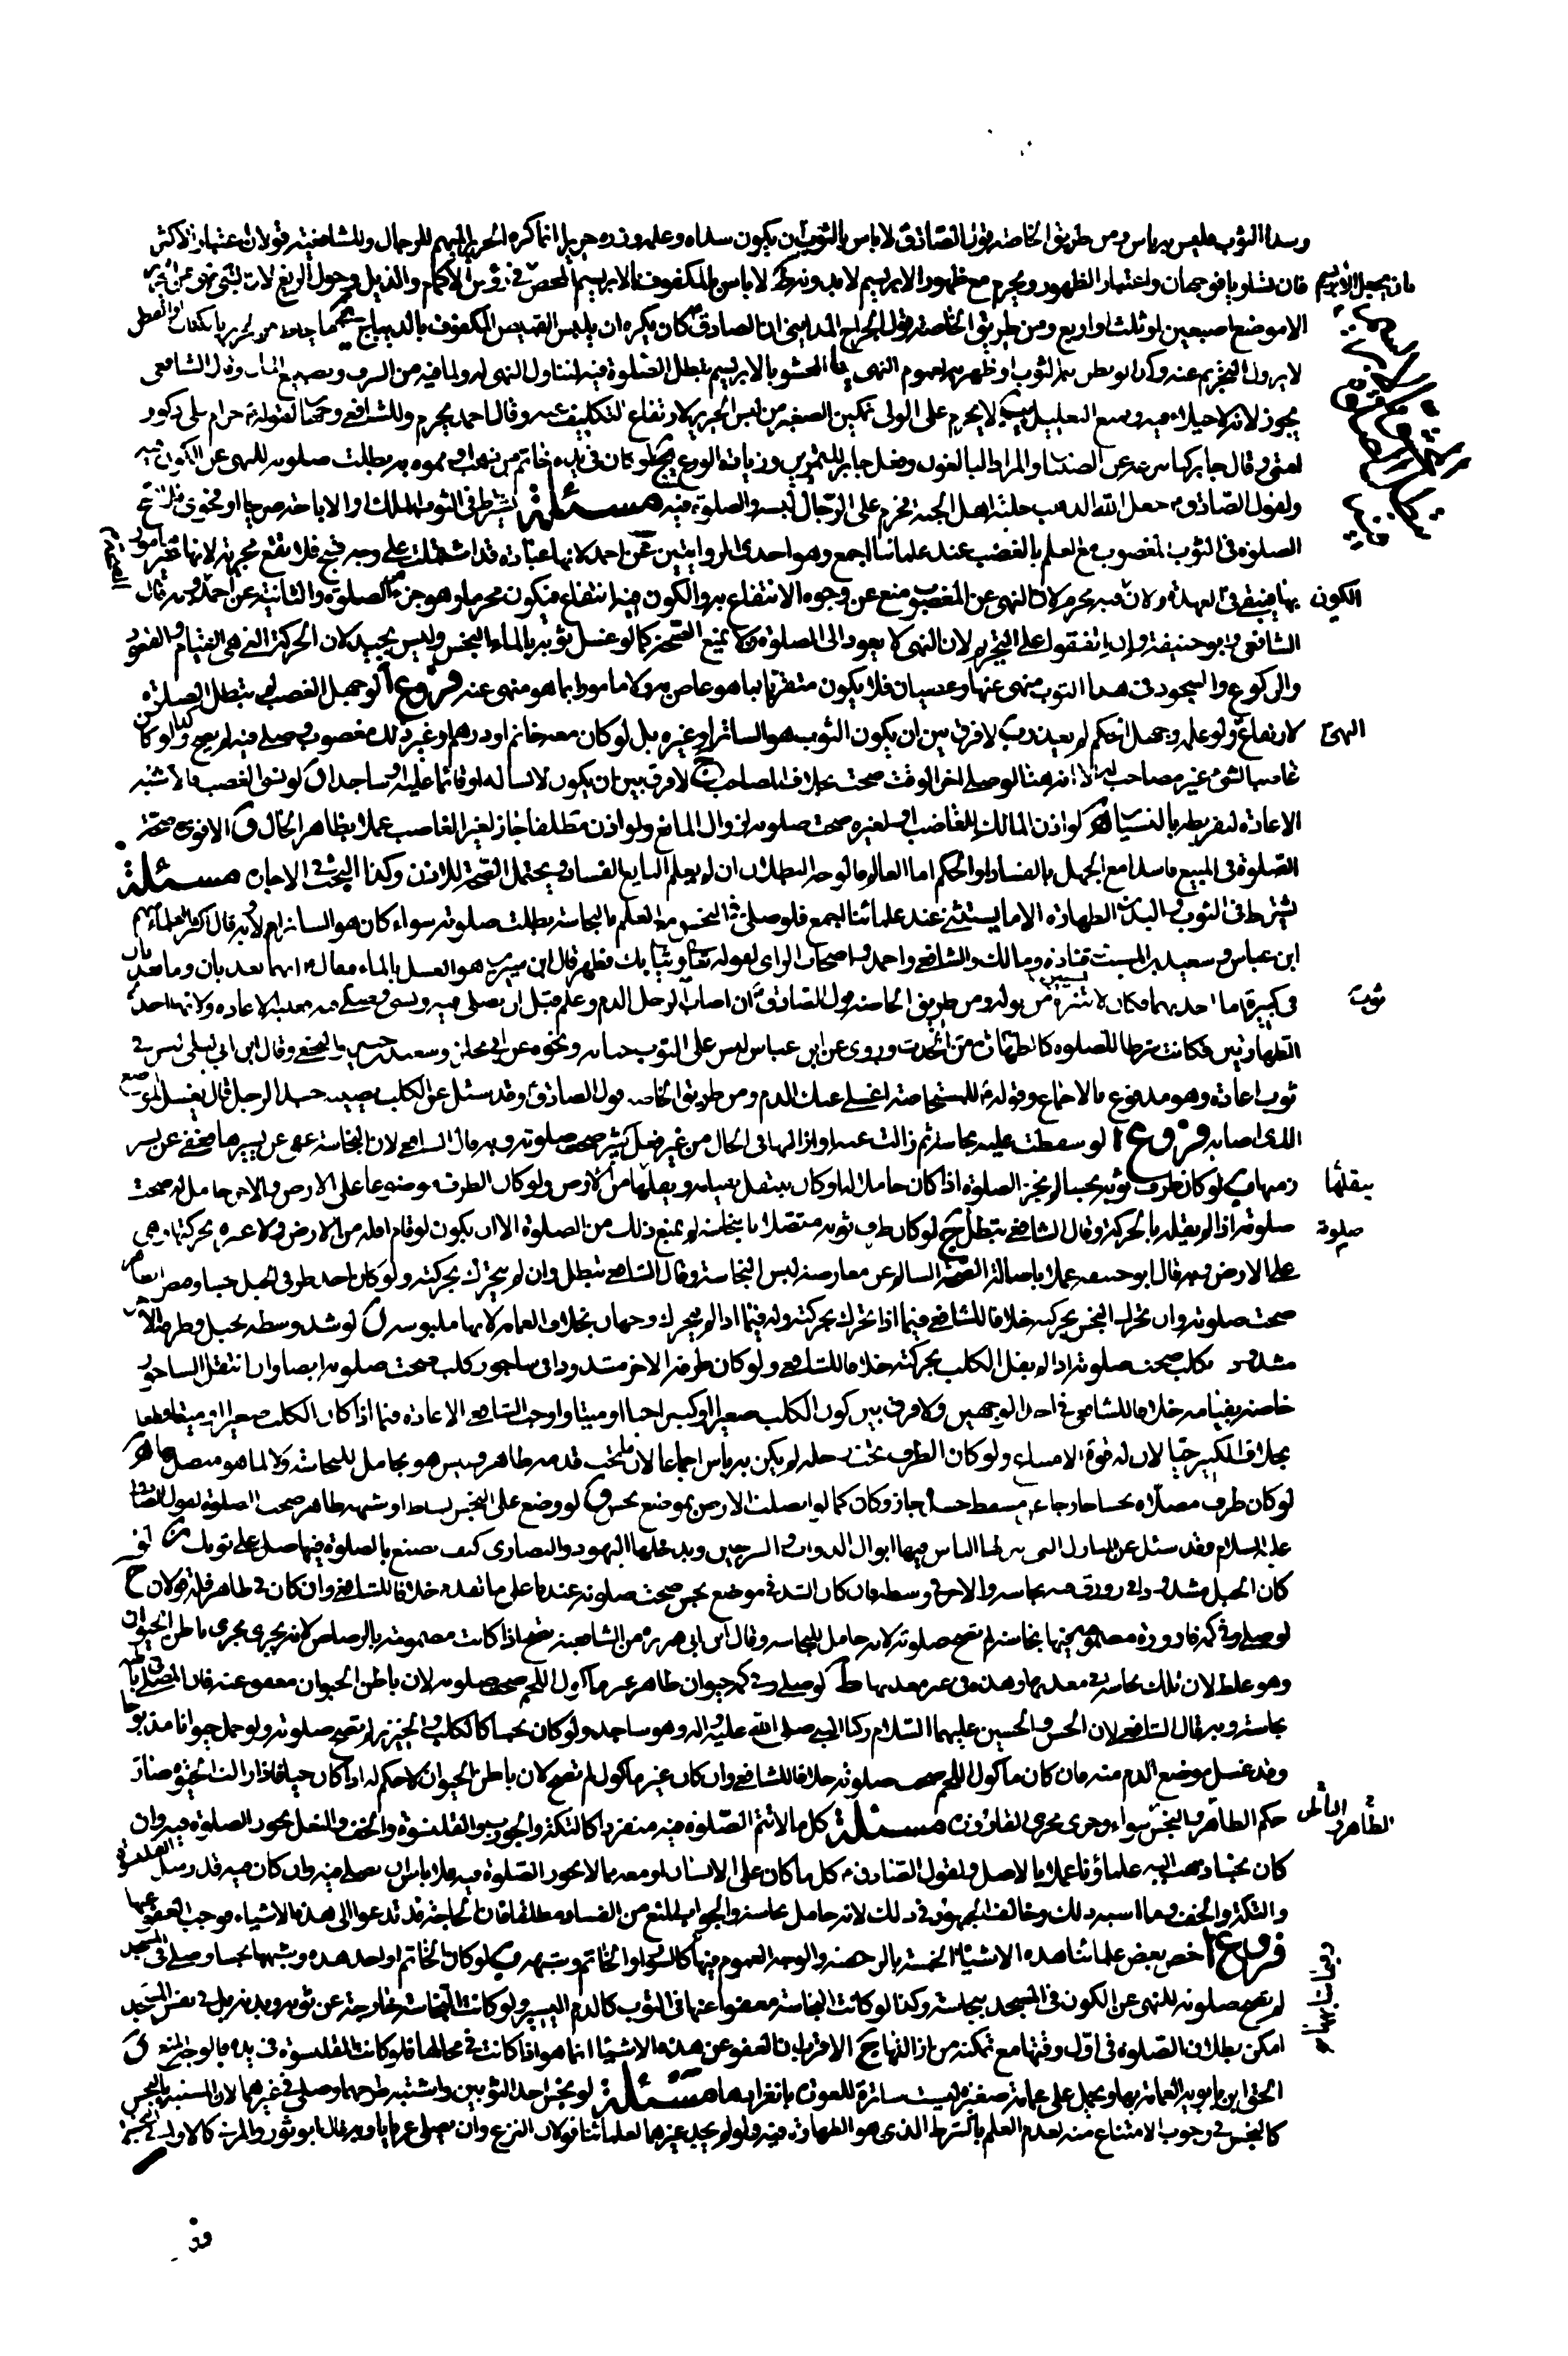 وسدا الثوب فليس به باس ومن طريق الخاصة قول الصادق لا باس بالثوب ان يكون سداه وعلمه وزره حريرا انما كره الحرير المبهم للرجال وللشافعية قولان اعتبار الاكثر
فان تساويا فوجهان واعتبار الظهور ويحرم مع ظهور الابريسم لا بدونه لا باس بالمكفوف بالابريسم المحض في رؤس الاكمام والذيل وحول الزيق لان النبي نهى عن الحرير
الا موضع اصبعين او ثلث او اربع ومن طريق الخاصة قول الجراح المدايني ان الصادق كان يكره ان يلبس القميص المكفوف بالديباج
لا يزول التحريم عنه وكذا لو بطن به الثوب او ظهر به لعموم النهي الحشو بالابريسم يبطل الصلوة فيه لتناول النهي له ولما فيه من السرف وتضييع المال وقال الشافعي
يجوز لانه لا خيلاء فيه ويمنع التعليل لا يحرم على الولي تمكين الصغير من لبس الحرير لارتفاع التكليف عنه وقال احمد يحرم وللشافعي وجهان لقوله حرام على ذكور
امتي وقال جابر كنا ننزعه عن الصبيان والمراد البالغون وفعل جابر للتمرين وزيادة الورع لو كان في يده خاتم من ذهب او مموه به بطلت صلوته للنهي عن الكون فيه
ولقول الصادق جعل الله الذهب حلية اهل الجنة فحرم على الرجال لبسه والصلوة فيه مسئلة يشترط في الثوب الملك او الاباحة صريحا او فحوى فلا تصح
الصلوة في الثوب المغصوب مع العلم بالغصب عند علمائنا اجمع وهو احدى الروايتين عن احمد لانها عبادة قد اشتملت على وجه قبيح فلا تقع مجزية لانها غير مامور
بها فيبقى في العهدة ولان فيه يحرم لان النهي عن المغصوب منع عن وجوه الانتفاع به والكون فيه انتفاع فيكون محرما وهو جزء الصلوة والثانية عن احمد وبه قال
الشافعي وابو حنيفة وان اتفقوا على التحريم لان النهي لا يعود الى الصلوة فلا يمنع الصحة كما لو غسل ثوبه بالماء النجس وليس بجيد لان الحركة التي هي القيام والقعود
والركوع والسجود في هذا الثوب منهي عنها وعصيان فلا يكون متقربا بما هو عاص به ولا مامورا بما هو منهي عنه فروع ا لو جهل الغصب لم تبطل الصلوة
لارتفاع النهي ولو علمه وجهل الحكم لم يعذر ب لا فرق بين ان يكون الثوب هو الساتر او غيره بل لو كان معه خاتم او درهم او غير ذلك مغصوب وصلى فيه لم يصح
غاصبا لشئ غير مصاحب له الا انه هنا لو صلى اخر الوقت صحت بخلاف المصاحب ج لا فرق بين ان يكون لابسا له او قائما عليه او ساجدا لو نسي الغصب فالاشبه
الاعادة لتفريطه بالنسيان لو اذن المالك للغاصب او لغيره صحت صلوته لزوال المانع ولو اذن مطلقا جاز لغير الغاصب عملا بظاهر الحال و الاقوى صحة
الصلوة في المبيع فاسدا مع الجهل بالفساد او الحكم اما العالم فالوجه البطلان ان لم يعلم البايع الفساد ويحتمل الصحة للاذن وكذا البحث في الاجارة مسئلة
يشترط في الثوب والبدن الطهارة الا ما يستثنى عند علمائنا اجمع فلو صلى في النجس مع العلم بالنجاسة بطلت صلوته سواء كان هو الساتر ام لا وبه قال اكثر العلماء منهم
ابن عباس وسعيد بن المسيب وقتادة ومالك والشافعي واحمد واصحاب الراي لقوله تعالى وثيابك فطهر قال ابن سيرين هو الغسل بالماء فقال انهما يعذبان وما يعذبان
في كبيرة اما احدهما فكان لا يستنزه من بوله ومن طريق الخاصة قول الصادق ان اصاب ثوب الرجل الدم وعلم قبل ان يصلي فيه ونسي وصلى فيه فعليه الاعادة ولانها احدى
الطهارتين فكانت شرطا للصلوة كالطهارة من الحدث وروي عن ابن عباس ليس على الثوب جنابة ونحوه عن ابي مجلز وسعيد بن جبير والنخعي وقال ابن ابي ليلى ليس في
ثوب اعادة وهو مدفوع بالاجماع وقوله للمستحاضة اغسلي عنك الدم ومن طريق الخاصة قول الصادق وقد سئل عن الكلب يصيب جسد الرجل قال يغسل الموضع
الذي اصابه فروع ا لو سقطت عليه نجاسة ثم زالت عنه او ازالها في الحال من غير فعل كثير صحت صلوته وبه قال الشافعي لان النجاسة عفي عن يسيرها فعفي عن يسير
زمنها ب لو كان طرف ثوبه نجسا لم يجز الصلوة اذا كان حاملا لها وكان ينتقل بقيامه ويقلها من الارض ولو كان الطرف موضوعا على الارض والاخر حامل له صحت
صلوته اذا لم يقله بالحركة وقال الشافعي تبطل ج لو كان طرف ثوبه متصلا بالنجاسة لم يمنع ذلك من الصلوة الا ان يكون لو قام اقله من الارض ولا عبرة بحركتها وهي
على الارض وبه قال ابو حنيفة عملا باصالة الصحة السالم عن معارضة لبس النجاسة وقال الشافعي تبطل وان لم يتحرك بحركته ولو كان احد طرفي الحبل نجسا وقبض الطاهر
صحت صلوته وان تحرك النجس بحركته خلافا للشافعي فيما اذا تحرك بحركته وله فيما اذا لم يتحرك وجهان بخلاف العمامة لانها ملبوسة لو شد وسطه بحبل وطرفه الاخر
مشدود بكلب صحت صلوته اذا لم يقل الكلب بحركته خلافا للشافعي ولو كان طرفه الاخر مشدودا في ساجور كلب صحت صلوته ايضا وان انتقل الساجور
خاصة بقيامه خلافا للشافعي في احد الوجهين ولا فرق بين كون الكلب صغيرا او كبيرا حيا او ميتا واوجب الشافعي الاعادة فيما اذا كان الكلب صغيرا او ميتا قطعا
بخلاف الكبير حيا لان له قوة الامتناع ولو كان الطرف تحت رجله لم يكن به باس اجماعا لان ما تحت قدمه طاهر وليس هو بحامل للنجاسة ولا لما هو متصل بها
لو كان طرف مصلاه نجسا خارجا عن مسقط جسده جاز وكان كما لو اتصلت الارض بموضع نجس و لو وضع على النجس بساط او شبهه طاهر صحت الصلوة لقول الصادق
عليه السلام وقد سئل عن المنازل التي ينزلها الناس فيها ابوال الدواب والسرجين ويدخلها اليهود والنصارى كيف نصنع بالصلوة فيها صل على ثوبك ز لو
كان الحبل مشدودا في زورق فيه نجاسة والاخر في وسطه فان كان الشد في موضع نجس صحت صلوته عندنا على ما تقدم خلافا للشافعي وان كان في طاهر فله قولان ح
لو صلى وفي كمه قارورة مضمومة فيها نجاسة لم تصح صلوته لانه حامل للنجاسة وقال ابن ابي هريرة من الشافعية تصح اذا كانت مصمومة بالرصاص لانه يجري مجرى باطن الحيوان
وهو غلط لان تلك نجاسة في معدنها وهذه في غير معدنها ط لو صلى وفي كمه حيوان طاهر غير ماكول اللحم صحت صلوته لان باطن الحيوان معفو عنه فان المصلي في باطنه
نجاسة وبه قال الشافعي لان الحسن والحسين عليهما السلام ركبا النبي صلى الله عليه واله وهو ساجد ولو كان نجسا كالكلب والخنزير لم تصح صلوته ولو حمل حيوانا مذبوحا
وقد غسل موضع الدم منه فان كان ماكول اللحم صحت صلوته خلافا للشافعي وان كان غير ماكول لم تصح لان باطن الحيوان لا حكم له اذا كان حيا فاذا زالت الحيوة صار
حكم الطاهر والنجس سواء وجرى مجرى القارورة مسئلة كل ما لا تتم الصلوة فيه منفردا كالتكة والجورب والقلنسوة والخف والنعل تجوز الصلوة فيه وان
كان نجسا ذهب اليه علماؤنا عملا بالاصل ولقول الصادق كل ما كان على الانسان او معه مما لا تجوز الصلوة فيه فلا باس ان يصلي فيه وان كان فيه قذر مثل القلنسوة
والتكة والخف وما اشبه ذلك وخالف الجمهور في ذلك لانه حامل نجاسة والجواب المنع من الفساد مطلقا فان الحاجة قد تدعو الى هذه الاشياء فوجب العفو عنها
فروع ا خص بعض علمائنا هذه الاشياء الخمسة بالرخصة والوجه العموم فيها كالسوار والخاتم وشبهه ب لو كان الخاتم او احد هذه وشبهها نجسا وصلى في المسجد
لم تصح صلوته للنهي عن الكون في المسجد بنجاسة وكذا لو كانت النجاسة معفوا عنها في الثوب كالدم اليسير ولو كانت النجاسة خارجة عن ثوبه وبدنه بل في نفس المسجد
امكن بطلان الصلوة في اول وقتها مع تمكنه من ازالتها ج الاقرب ان العفو عن هذه الاشياء انما هو اذا كانت في محالها فلو كانت القلنسوة في يده فالوجه المنع
الحق ابن بابويه العمامة بها ويحمل على عمامة صغيرة ليست ساترة للعورة بانفرادها مسئلة لو نجس احد الثوبين واشتبه طرحهما وصلى في غيرهما لان المشتبه بالنجس
كالنجس في وجوب الامتناع منه لعدم العلم بالشرط الذي هو الطهارة فيه ولو لم يجد غيرهما لعلمائنا قولان النزع وان يصلي عريانا وبه قال ابو ثور والمزني كالاواني
الكون
النهي
ثوب
ينقلها
صلوته